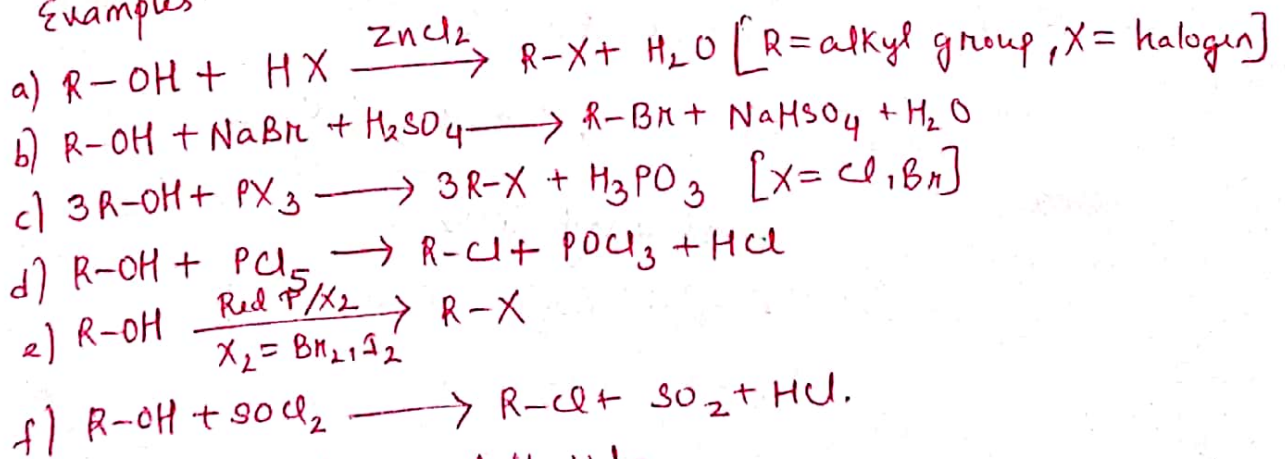 Examples
a) R-OH + HX ZnCl₂ → R-X + H₂O [R = alkyl group, X = halogen]
b) R-OH + NaBr + H₂SO₄ → R-Br + NaHSO₄ + H₂O
c) 3R-OH + PX₃ → 3R-X + H₃PO₃ [X = Cl, Br]
d) R-OH + PCl₅ → R-Cl + POCl₃ + HCl
e) R-OH Red P/X₂ → R-X
X₂ = Br₂, I₂
f) R-OH + SOCl₂ → R-Cl + SO₂ + HCl.